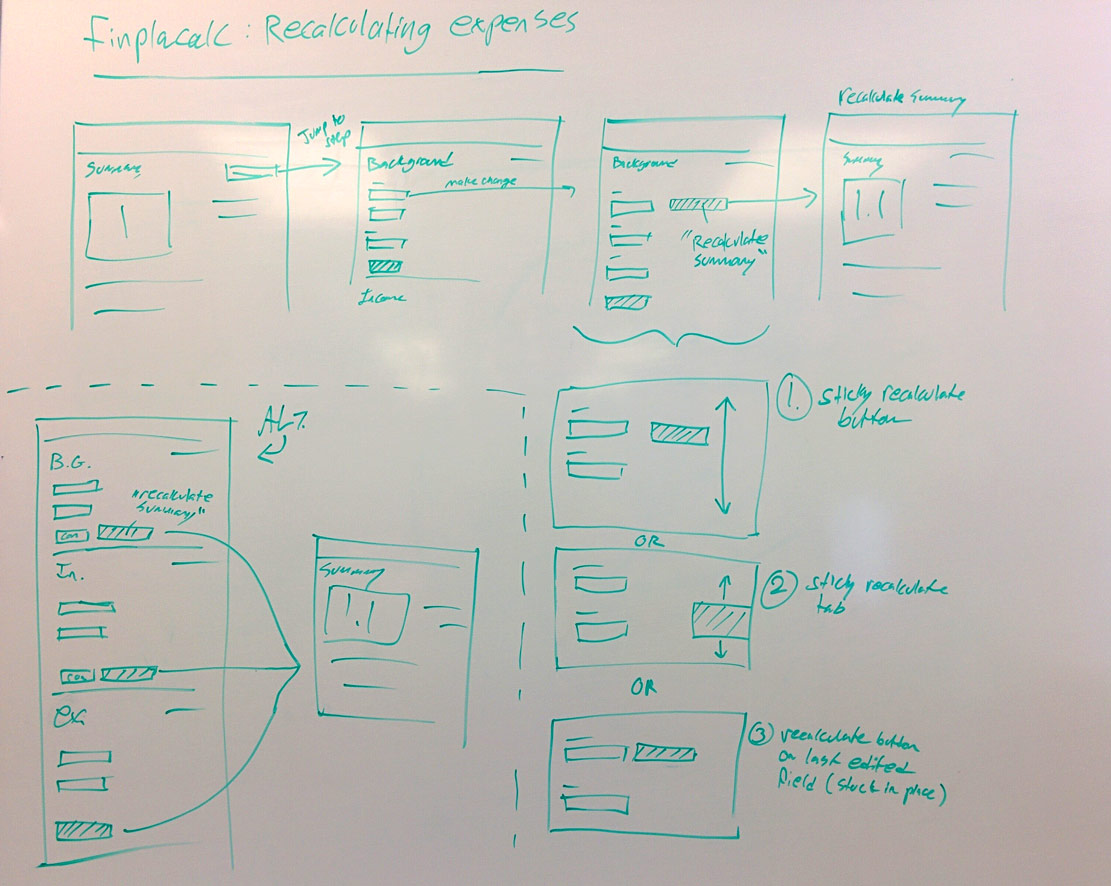 Finplacalc: Recalculating expenses
Summary
1
Jump to
step
Background
make change
Income
Background
"Recalculate
Summary"
recalculate summary
Summary
1.1
ALT.
B.G.
"recalculate
Summary"
con
In.
con
Ex
Summary
1.1
1. sticky recalculate
button
OR
2 sticky recalculate
tab
OR
3 recalculate button
on last edited
field (stuck in place)